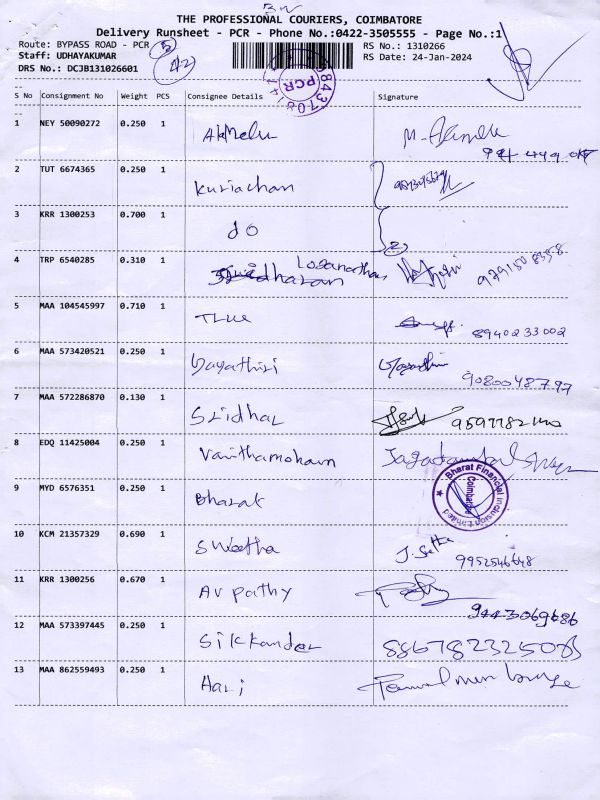 THE PROFESSIONAL COURIERS, COIMBATORE
Delivery Runsheet - PCR - Phone No.:0422-3505555 - Page No.:1
Route: BYPASS ROAD - PCR
RS No.: 1310266
Staff: UDHAYAKUMAR
RS Date: 24-Jan-2024
DRS No.: DCJB131026601
42
PCR
S No Consignment No Weight PCS Consignee Details Signature
1 NEY 50090272 0.250 1
2 TUT 6674365 0.250 1 Kuriachan
3 KRR 1300253 0.700 1 do
4 TRP 6540285 0.310 1 Loganathan
5 MAA 104545997 0.710 1 True 8940233002
6 MAA 573420521 0.250 1 Gayathiri 9080048797
7 MAA 572286870 0.130 1 Sridhar
8 EDQ 11425004 0.250 1 Vanithamohan
9 MYD 6576351 0.250 1 Bharat
Bharat Financial Inclusion Limited
Coimbatore
10 KCM 21357329 0.690 1 Swetha 9952546648
11 KRR 1300256 0.670 1 Av pathy 9443069686
12 MAA 573397445 0.250 1 Sikkandar
13 MAA 862559493 0.250 1 Hari